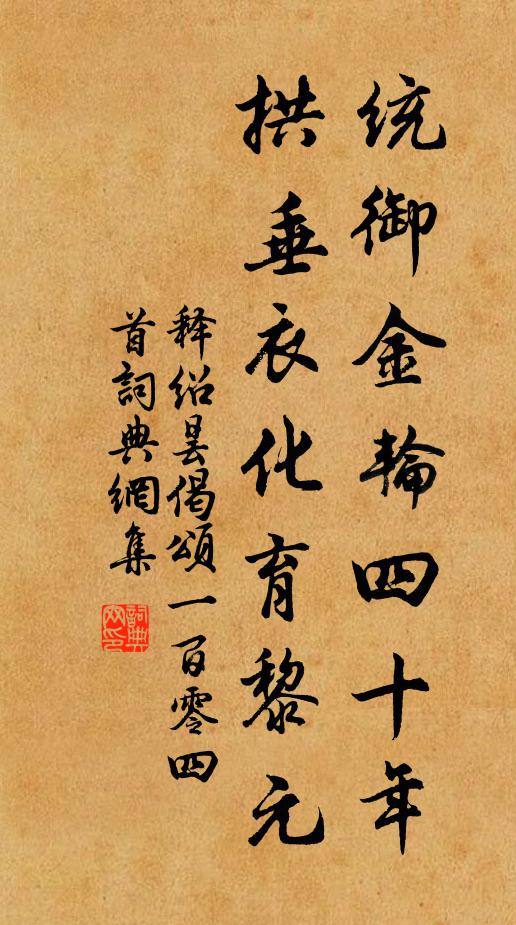 统御金轮四十年
拱垂衣化育黎元
释绍昙偈颂一百零四
首詞典網集
詞典网印